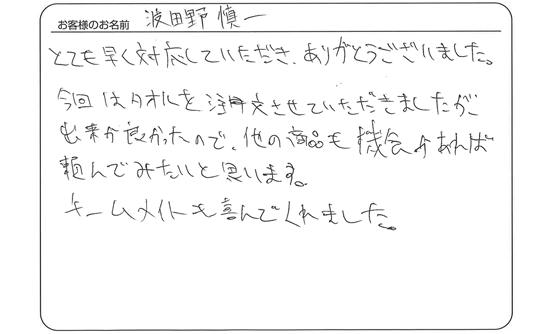 お客様のお名前 波田野 慎一
とても早く対応していただき、ありがとうございました。
今回はタオルを注文させていただきましたが
出来が良かったので、他の商品も機会があれば
頼んでみたいと思います。
チームメイトも喜んでくれました。